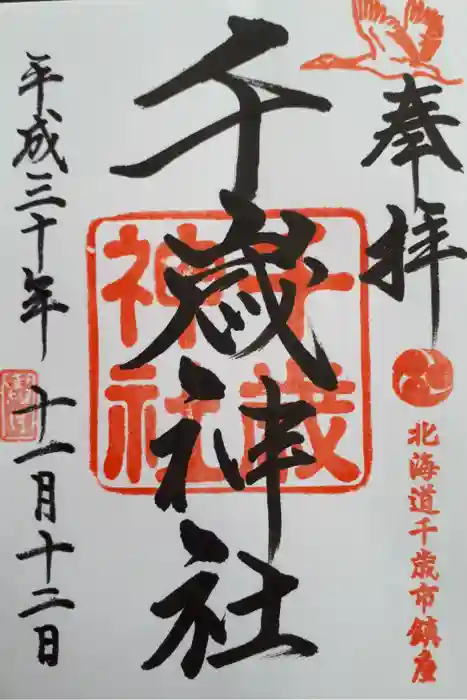 奉拝
北海道千歳市鎮座
千歳神社
千歳
神社
平成三十年十一月十二日